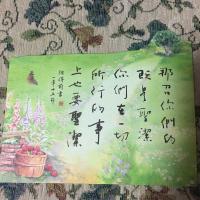 那召你們的
既是聖潔
你們在一切
所行的事
上也要聖潔
彼得前書
一章十五節